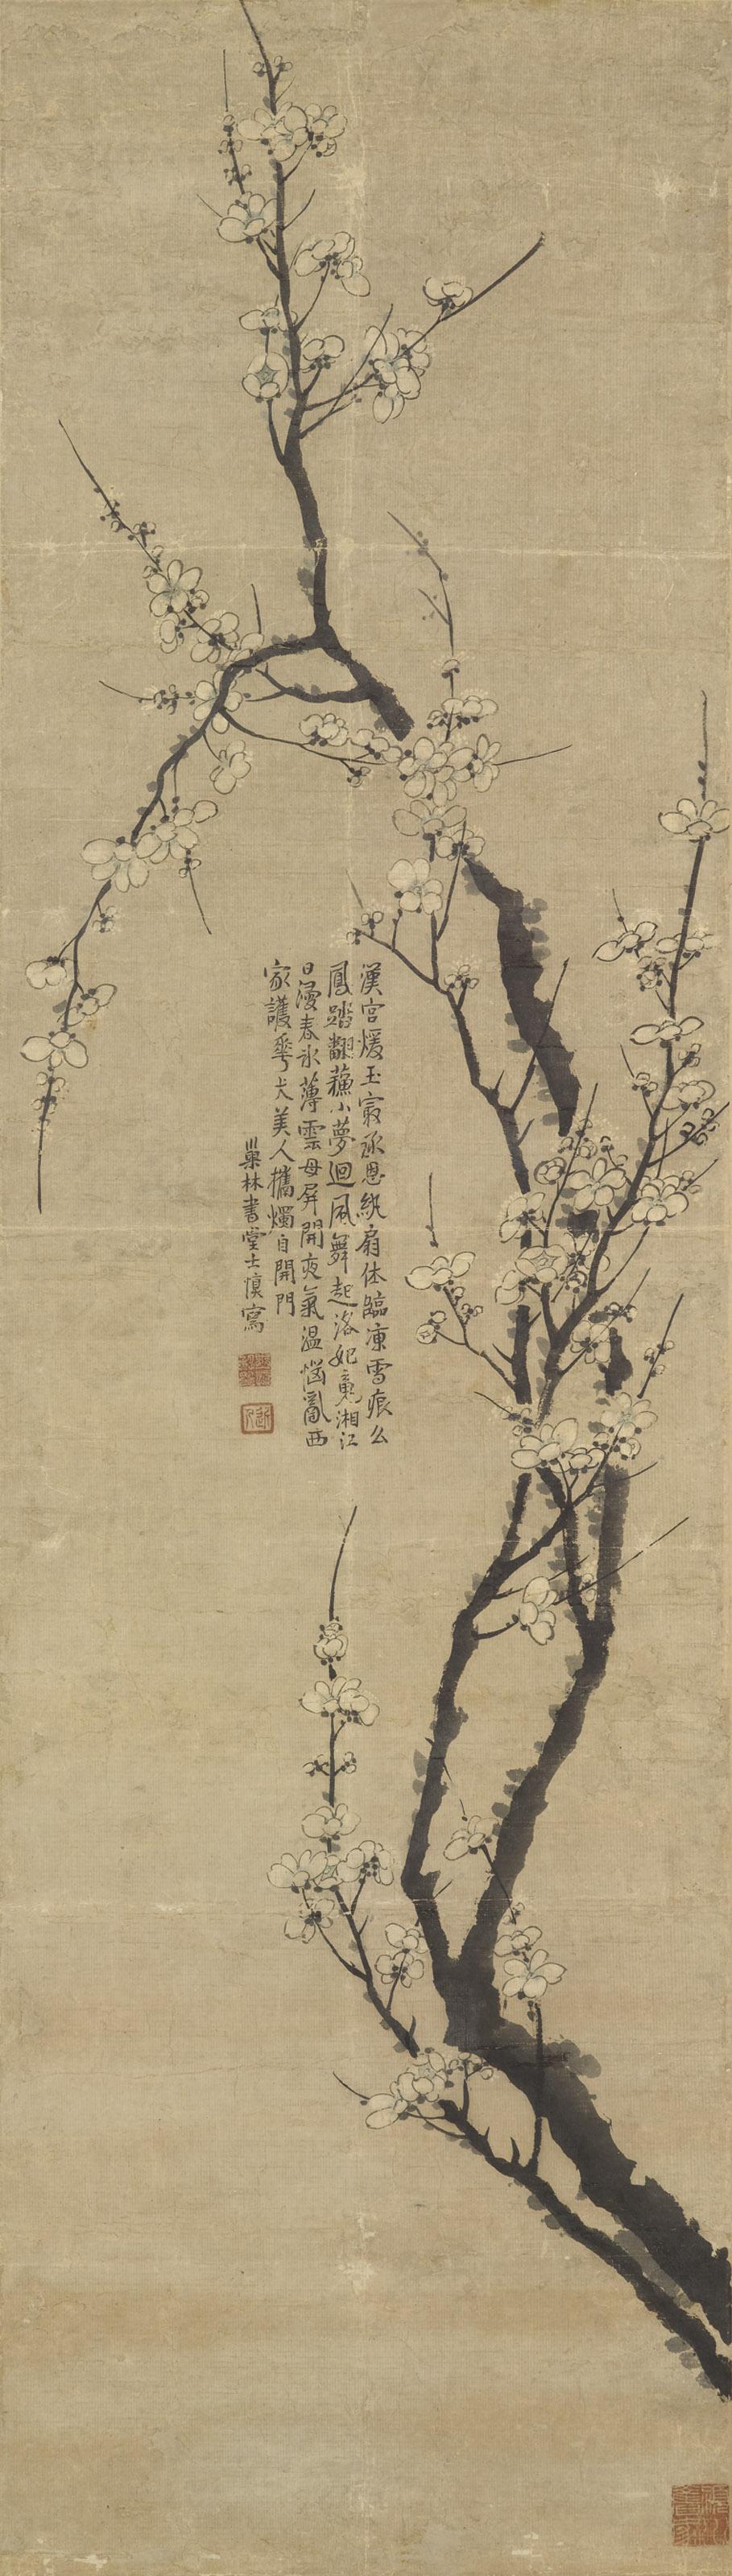 漢宮煖玉寢承恩紈扇休臨凍雪痕么
鳳踏翻蘓小夢迴風舞起洛妃䰟湘江
日漫春冰薄雲母屏開夜氣溫惱亂西
家護華犬美人攜燭自開門
巢林書堂士慎寫